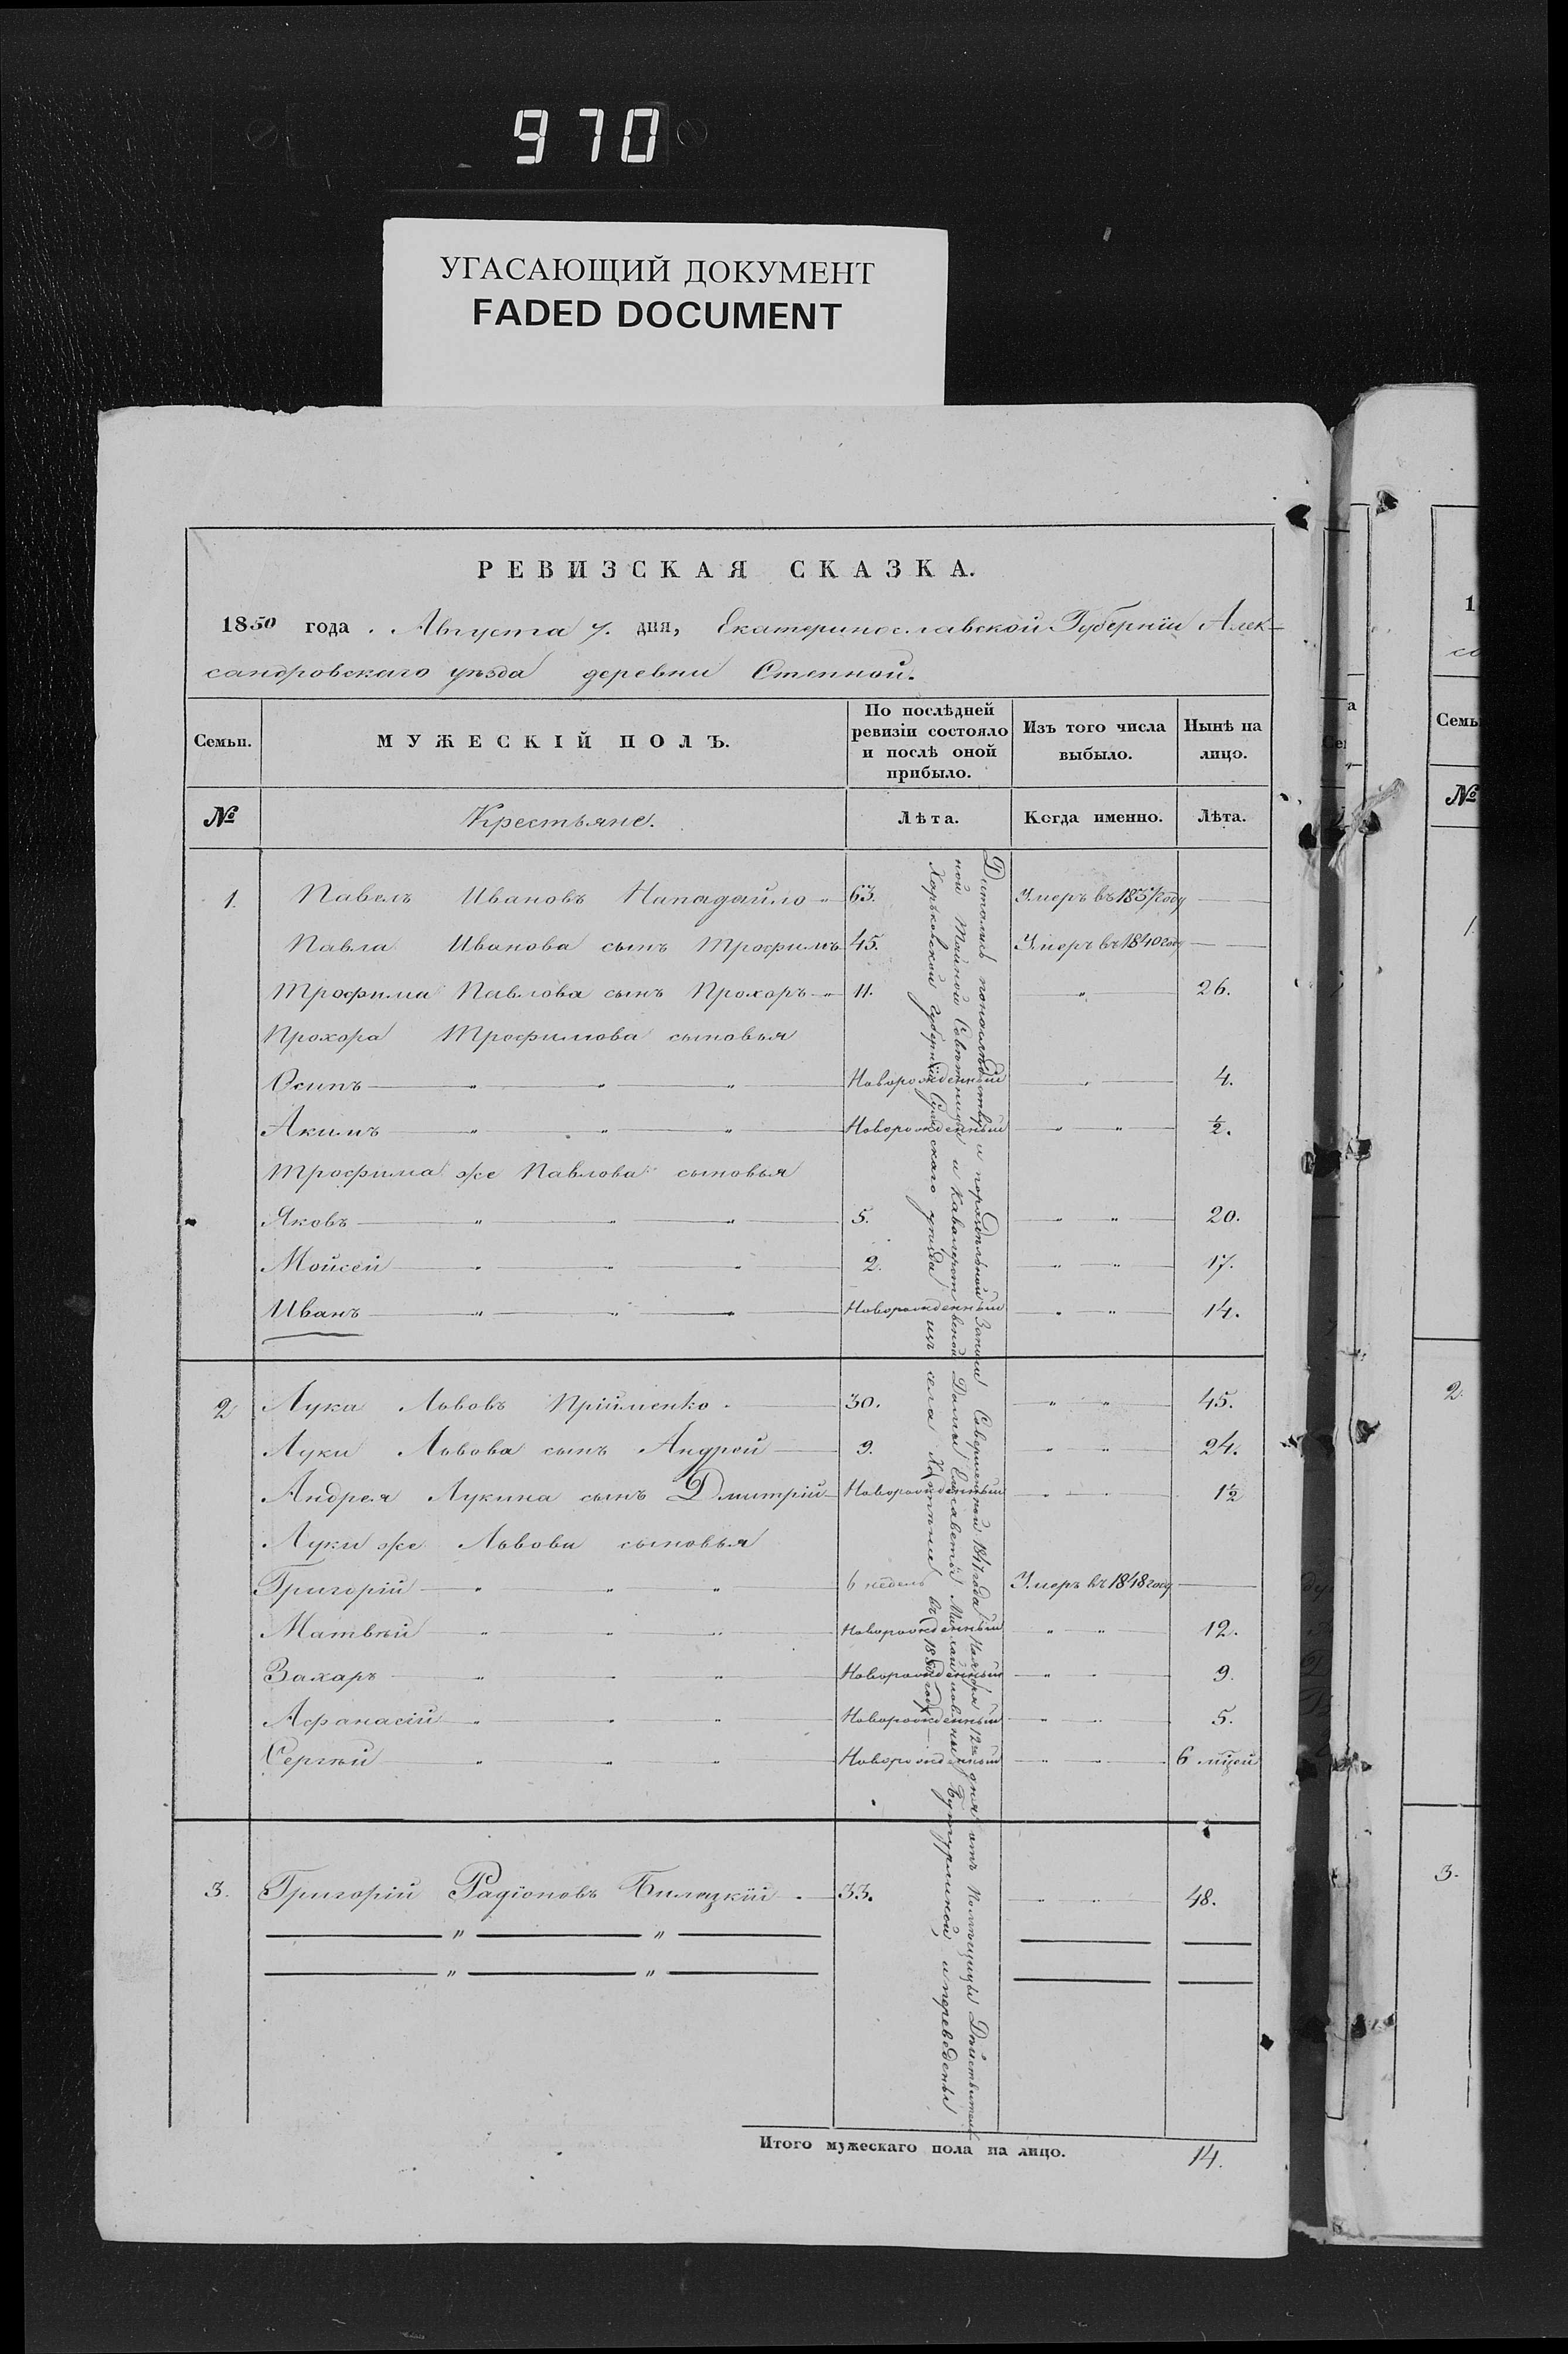 970
УГАСАЮЩИЙ ДОКУМЕНТ
FADED DOCUMENT
РЕВИЗСКАЯ СКАЗКА.
1850 года. Августа 7. дня, Екатеринославской Губерніи Алек-
сандровскаго уѣзда деревни Степной.
Семьи.
МУЖЕСКІЙ ПОЛЪ.
По послѣдней ревизіи состояло и послѣ оной прибыло.
Изъ того числа выбыло.
Нынѣ на лицо.
№ Крестьяне. Лѣта. Когда именно. Лѣта.
1. Павелъ Ивановъ Нападайло " 63. Умеръ въ 1837 году
Павла Иванова сынъ Трофимъ 45. Умеръ въ 1840 году
Трофима Павлова сынъ Прохоръ " 11. " 26.
Прохора Трофимова сыновья
Осипъ " " " Новорожденный " 4.
Акимъ " " " Новорожденный " " 1/2.
Трофима же Павлова сыновья
Яковъ " " " 5. " " 20.
Мойсей " " " 2. " " 17.
Иванъ " " " Новорожденный " " 14.
2 Лука Львовъ Прійменко. 30. " " 45.
Луки Львова сынъ Андрей 9. " " 24.
Андрея Лукина сынъ Дмитрій Новорожденный " " 1 1/2
Луки же Львова сыновья
Григорій " " " 6 недель Умеръ въ 1848 году
Матвѣй " " " Новорожденный " " 12.
Захаръ " " " Новорожденный " " 9.
Афанасій " " " Новорожденный " " 5.
Сергѣй " " " Новорожденный " " 6 мцей
3. Григорій Радіоновъ Билецкій. 33. " " 48.
" "
" "
Достались понаслѣдству и пораздѣльной Записи Совершенной 1847 года Ноября 12го дня отъ Помѣщицы Дѣйствитель-
ной Тайной Совѣтницы и Кавалерственной Дамы Елисаветы Михайловны Бутурлиной, и переведены
Харьковской Губерніи Сумскаго уѣзда изъ села въ году
Итого мужескаго пола на лицо. 14.
1
со
Семьи
№
1.
2.
3.